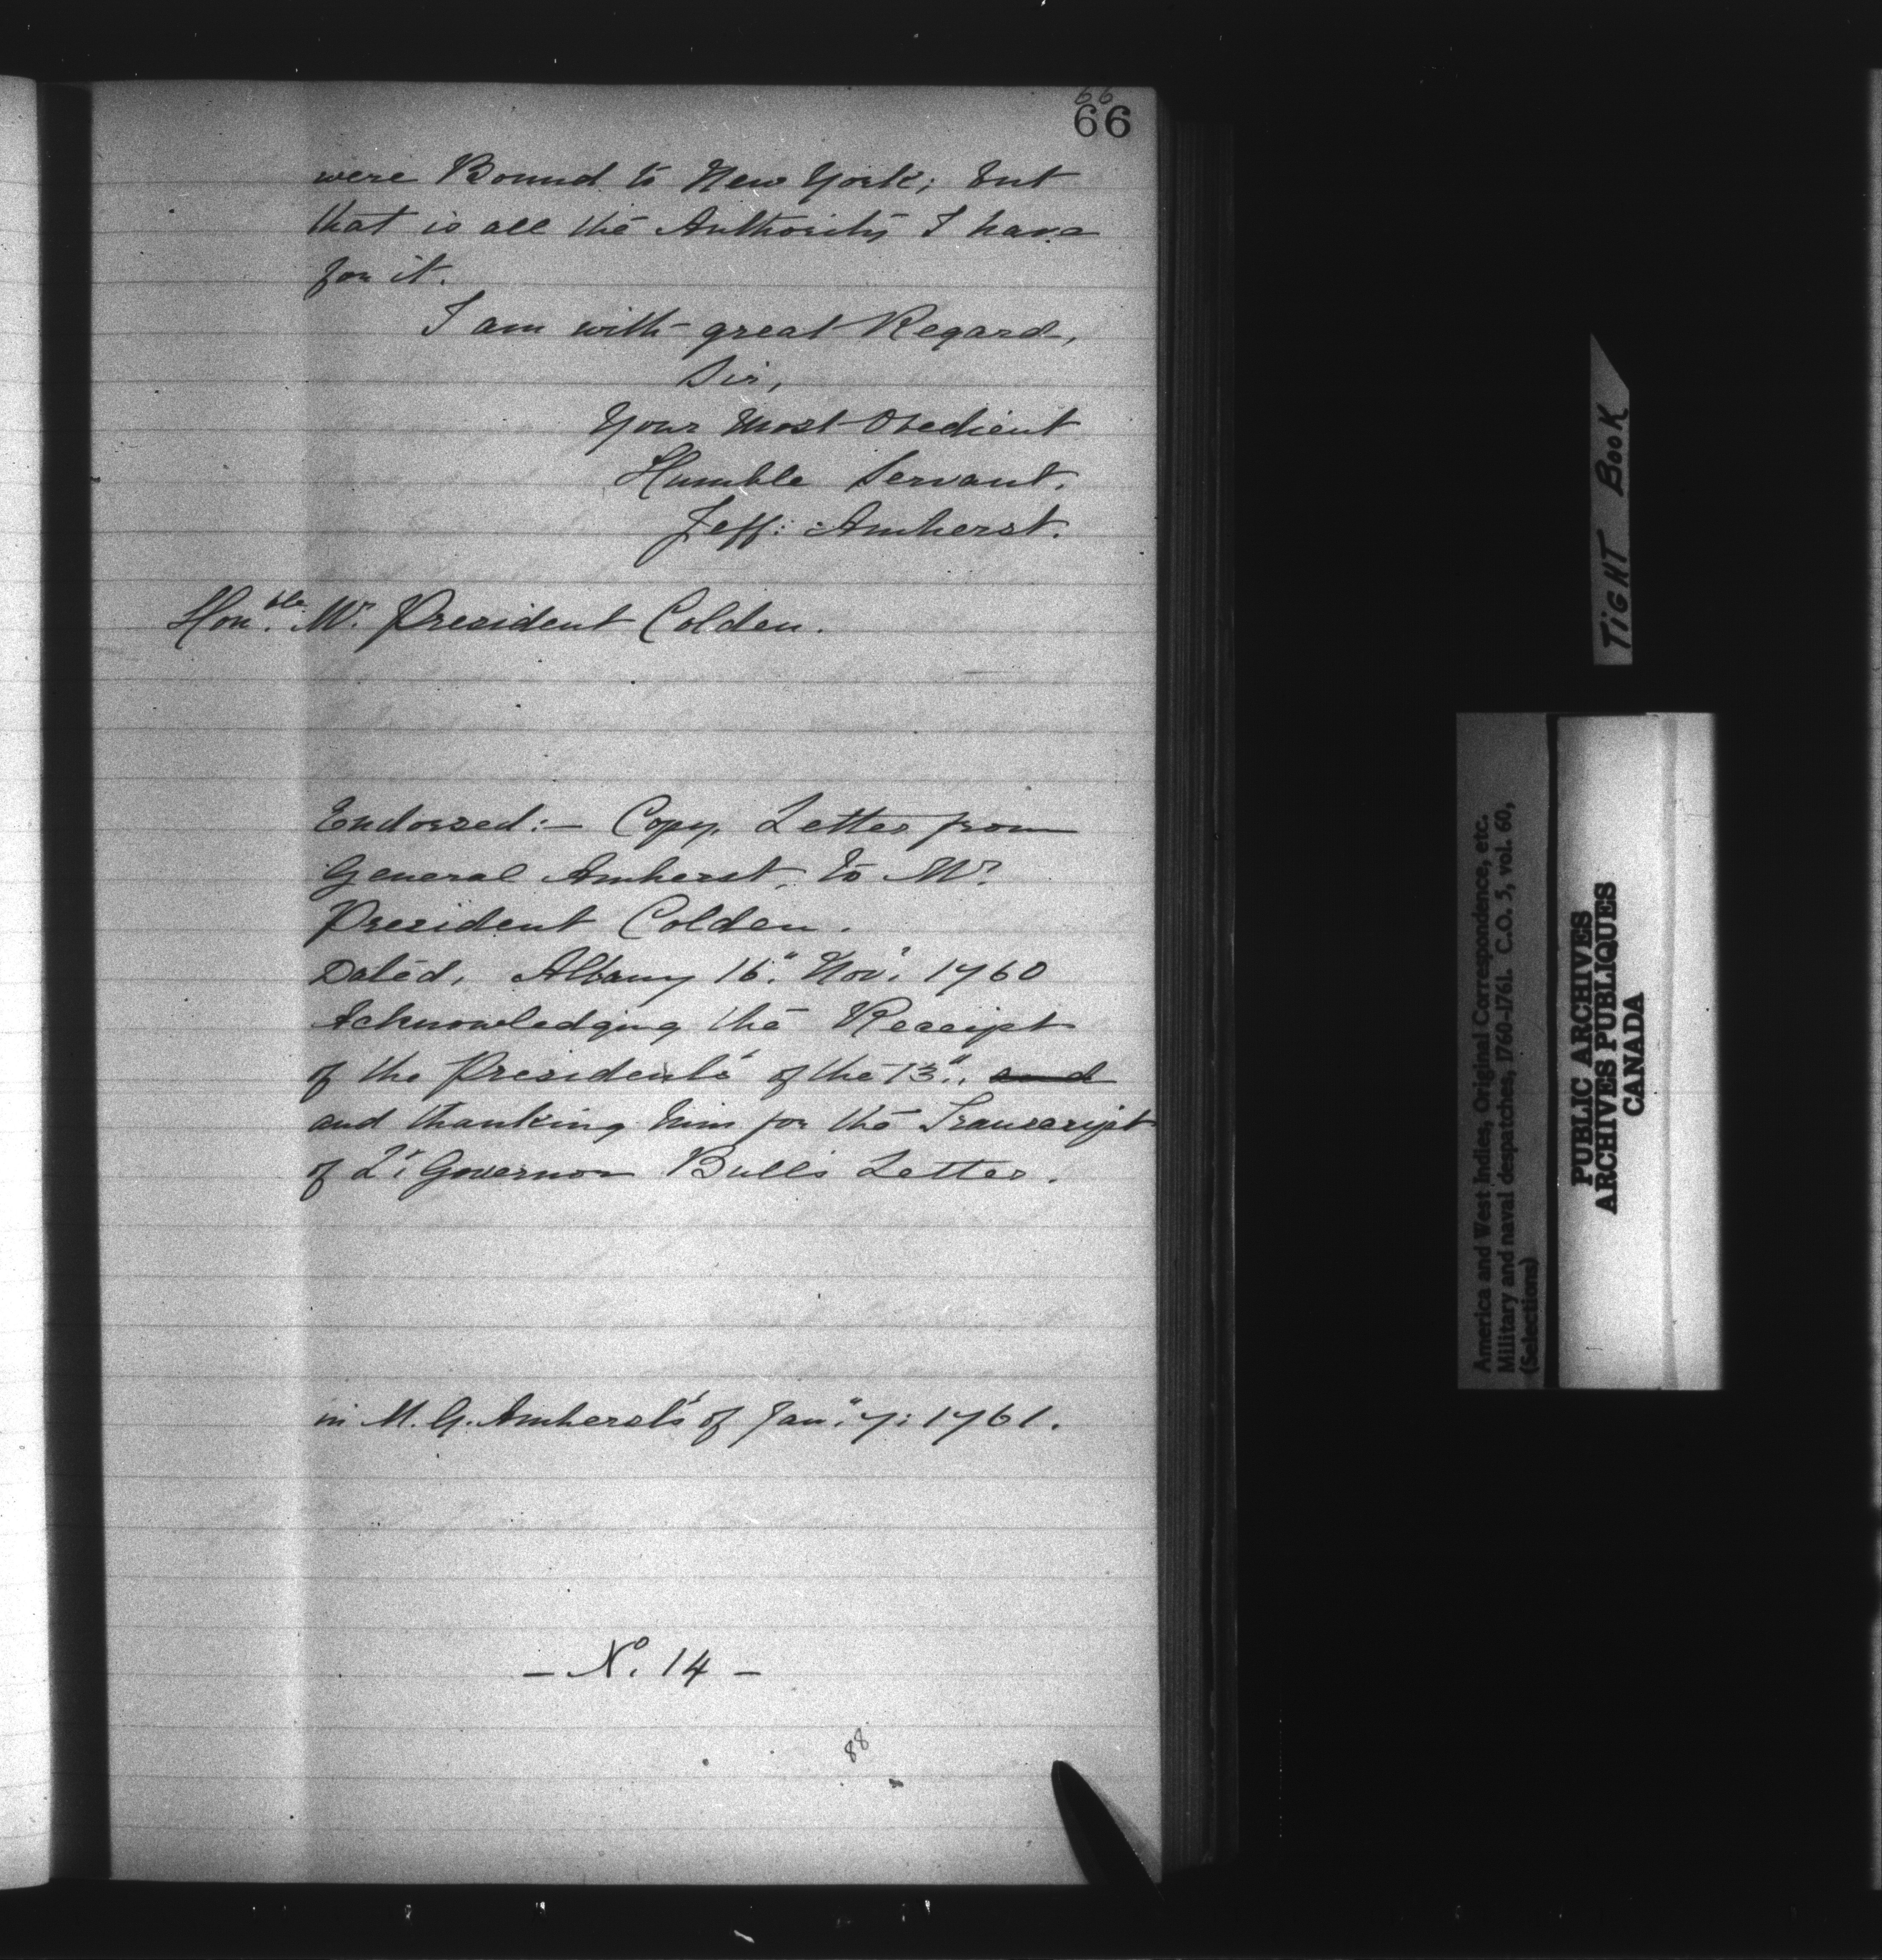 66
66
were Bound to New York; but
that is all the Authority I have
for it.
I am with great Regard,
Sir,
Your Most Obedient
Humble Servant.
Jeff: Amherst.
Hon.ble Mr. President Colden.
Endorsed:— Copy. Letter from
General Amherst, to Mr.
President Colden.
Dated, Albany 16." Nov.r 1760
Acknowledging the Receipt
of the President's of the 13"., and
and thanking him for the Transcript
of Lt. Governor Bull's Letter.
in M. G. Amherst's of Jan.y 7: 1761.
— No. 14 —
88
TIGHT BOOK
America and West Indies, Original Correspondence, etc.
Military and naval despatches, 1760-1761. C.O. 5, vol. 60,
(Selections)
PUBLIC ARCHIVES
ARCHIVES PUBLIQUES
CANADA